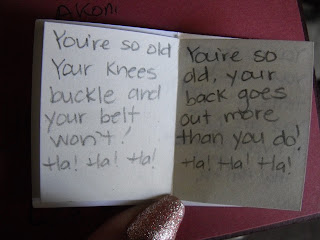 AKON
You're so old
Your Knees
buckle and
your belt
won't!
Ha! Ha! Ha!
You're so
old, your
back goes
out more
than you do!
Ha! Ha! Ha!